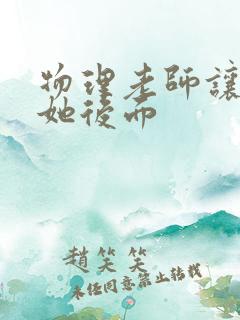 物理老師讓
她後而
趙笑笑
未经同意禁止转载